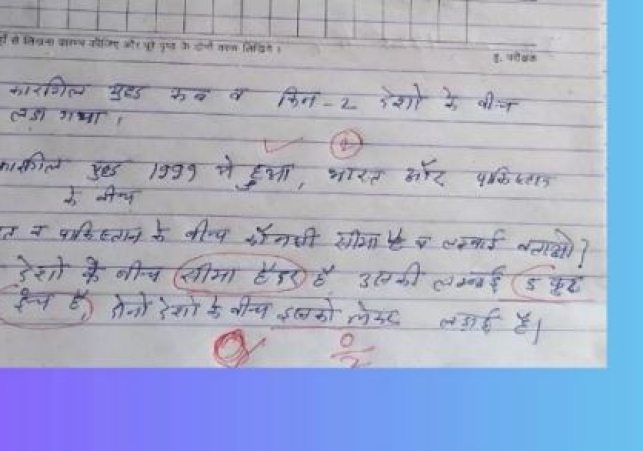 से लिखना प्रारम्भ कीजिए और पूरे पृष्ठ के दोनों तरफ लिखिये।
ह. परीक्षक
कारगिल युद्ध कब व किन-2 देशो के बीच
लडा गया।
2
कारगील युद्ध 1999 मे हुआ, भारत और पाकिस्तान
के बीच
त व पाकिस्तान के बीच कौनसी सीमा है व लम्बाई बताओ?
देशो के बीच सीमा हैदर है, उसकी लम्बाई 5 फुट
इंच है, दोनो देशो के बीच इसको लेकर लडाई है।
0